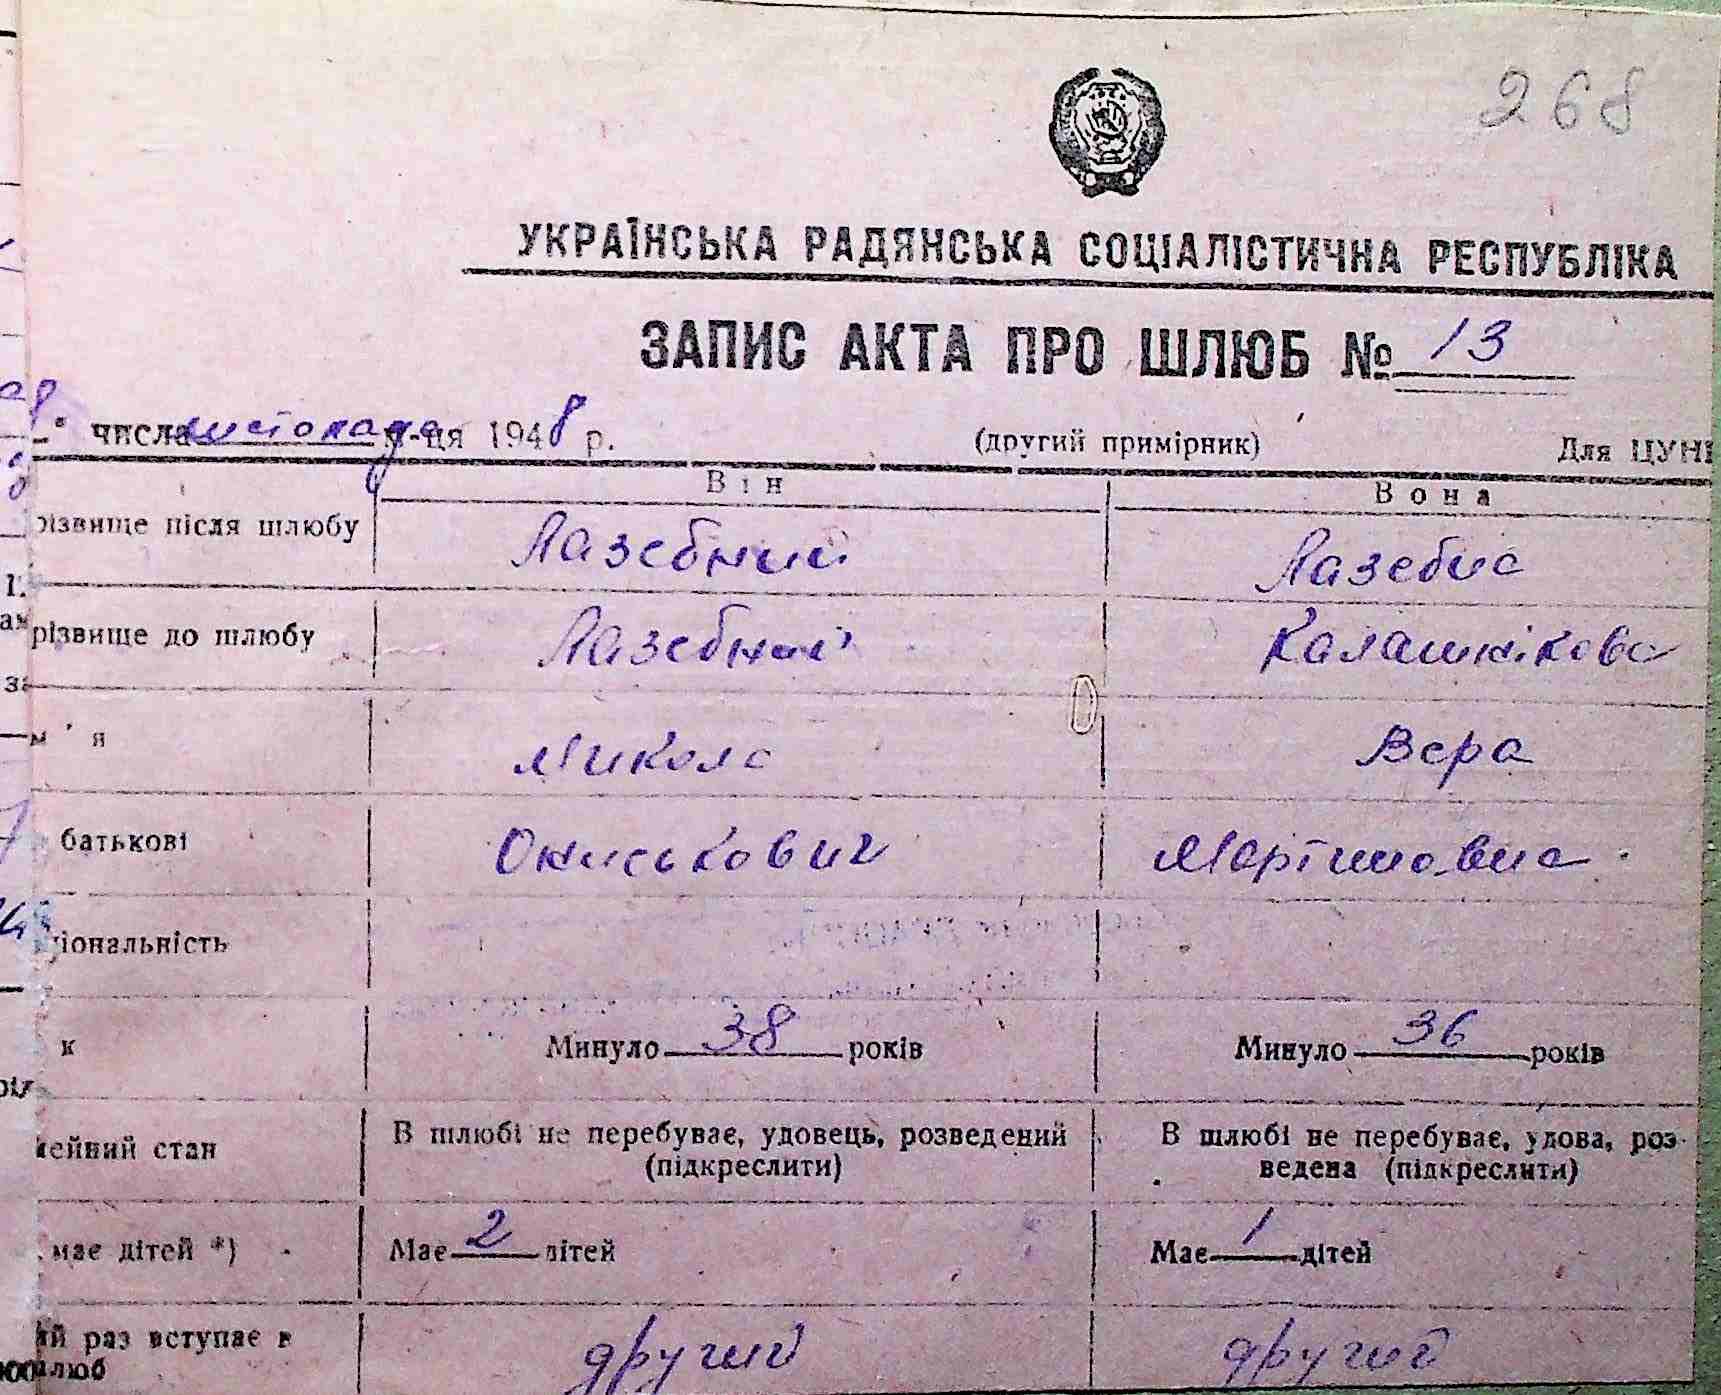 268
УКРАЇНСЬКА РАДЯНСЬКА СОЦІАЛІСТИЧНА РЕСПУБЛІКА
ЗАПИС АКТА ПРО ШЛЮБ № 13
числа листопада м-ця 1948 р. (другий примірник) Для ЦУНІ
Він Вона
різвище після шлюбу Лазебний Лазебна
різвище до шлюбу Лазебний Калашнікова
м'я Микола Вера
батькові Ониськович Мартиновна
ціональність
к Минуло 38 років Минуло 36 років
мейний стан В шлюбі не перебуває, удовець, розведений В шлюбі не перебуває, удова, роз-
(підкреслити) ведена (підкреслити)
має дітей *) Має 2 дітей Має 1 дітей
ий раз вступає в другий другий
шлюб